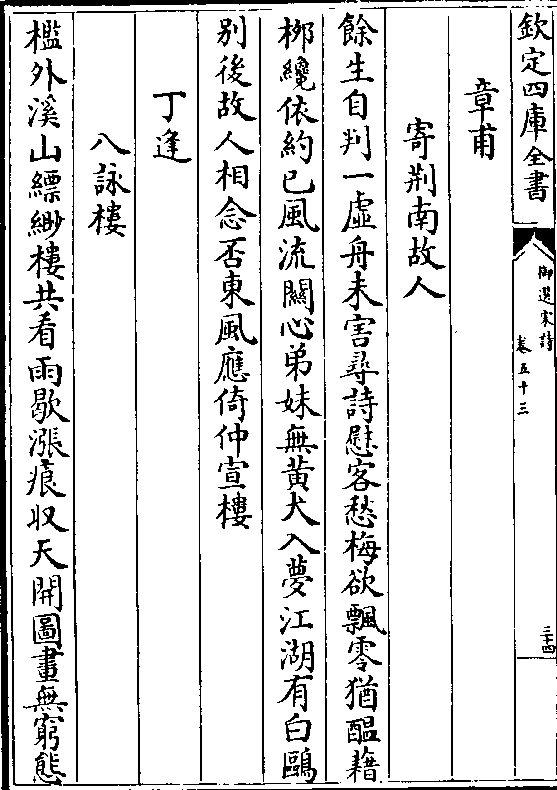 欽定四庫全書
御選宋詩
卷五十三
三十四
章甫
寄荆南故人
餘生自判一虛舟未害尋詩慰客愁梅欲飄零猶醖藉
栁纔依約已風流關心弟妹無黃犬入夢江湖有白鷗
别後故人相念否東風應倚仲宣樓
丁逢
八詠樓
檻外溪山縹緲樓共看雨歇漲痕収天開圖畫無窮態